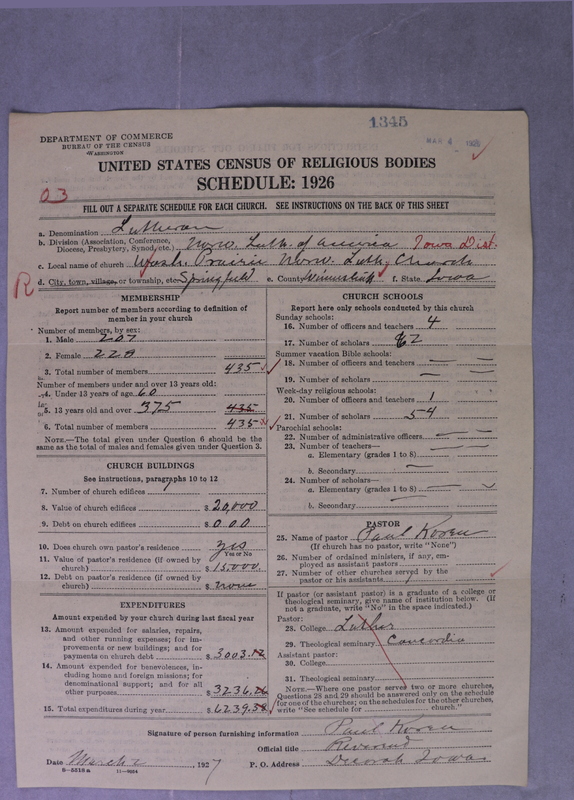 1345
DEPARTMENT OF COMMERCE
BUREAU OF THE CENSUS
WASHINGTON
MAR 4
UNITED STATES CENSUS OF RELIGIOUS BODIES
SCHEDULE: 1926
03
FILL OUT A SEPARATE SCHEDULE FOR EACH CHURCH. SEE INSTRUCTIONS ON THE BACK OF THIS SHEET
a. Denomination Lutheran
b. Division (Association, Conference, Diocese, Presbytery, Synod, etc.) Norw. Luth. of America Iowa Dist.
c. Local name of church Wash. Prairie Norw. Luth. Church
R d. City, town, village, or township, etc. Springfield e. County Winneshiek f. State Iowa
MEMBERSHIP
Report number of members according to definition of
member in your church
Number of members, by sex:
1. Male 207
2. Female 228
3. Total number of members 435
Number of members under and over 13 years old:
4. Under 13 years of age 60
5. 13 years old and over 375 435
6. Total number of members 435
NOTE.—The total given under Question 6 should be
the same as the total of males and females given under Question 3.
CHURCH BUILDINGS
See instructions, paragraphs 10 to 12
7. Number of church edifices 1
8. Value of church edifices $20,000
9. Debt on church edifices $000
10. Does church own pastor's residence yes
Yes or No
11. Value of pastor's residence (if owned by
church) $15,000
12. Debt on pastor's residence (if owned by
church) $ none
EXPENDITURES
Amount expended by your church during last fiscal year
13. Amount expended for salaries, repairs,
and other running expenses; for im-
provements or new buildings; and for
payments on church debt $3003.12
14. Amount expended for benevolences, in-
cluding home and foreign missions; for
denominational support; and for all
other purposes $3236.26
15. Total expenditures during year $6239.38
CHURCH SCHOOLS
Report here only schools conducted by this church
Sunday schools:
16. Number of officers and teachers 4
17. Number of scholars 62
Summer vacation Bible schools:
18. Number of officers and teachers —
19. Number of scholars —
Week-day religious schools:
20. Number of officers and teachers 1
21. Number of scholars 54
Parochial schools:
22. Number of administrative officers —
23. Number of teachers—
a. Elementary (grades 1 to 8) —
b. Secondary —
24. Number of scholars—
a. Elementary (grades 1 to 8) —
b. Secondary —
PASTOR
25. Name of pastor Paul Koren
(If church has no pastor, write "None")
26. Number of ordained ministers, if any, em-
ployed as assistant pastors
27. Number of other churches served by the
pastor or his assistants
If pastor (or assistant pastor) is a graduate of a college or
theological seminary, give name of institution below. (If
not a graduate, write "No" in the space indicated.)
Pastor:
28. College Luther
29. Theological seminary Concordia
Assistant pastor:
30. College
31. Theological seminary
NOTE.—Where one pastor serves two or more churches,
Questions 28 and 29 should be answered only on the schedule
for one of the churches; on the schedules for the other churches,
write "See schedule for church."
Signature of person furnishing information Paul Koren
Official title Reverend
Date March 2 1927 P. O. Address Decorah Iowa